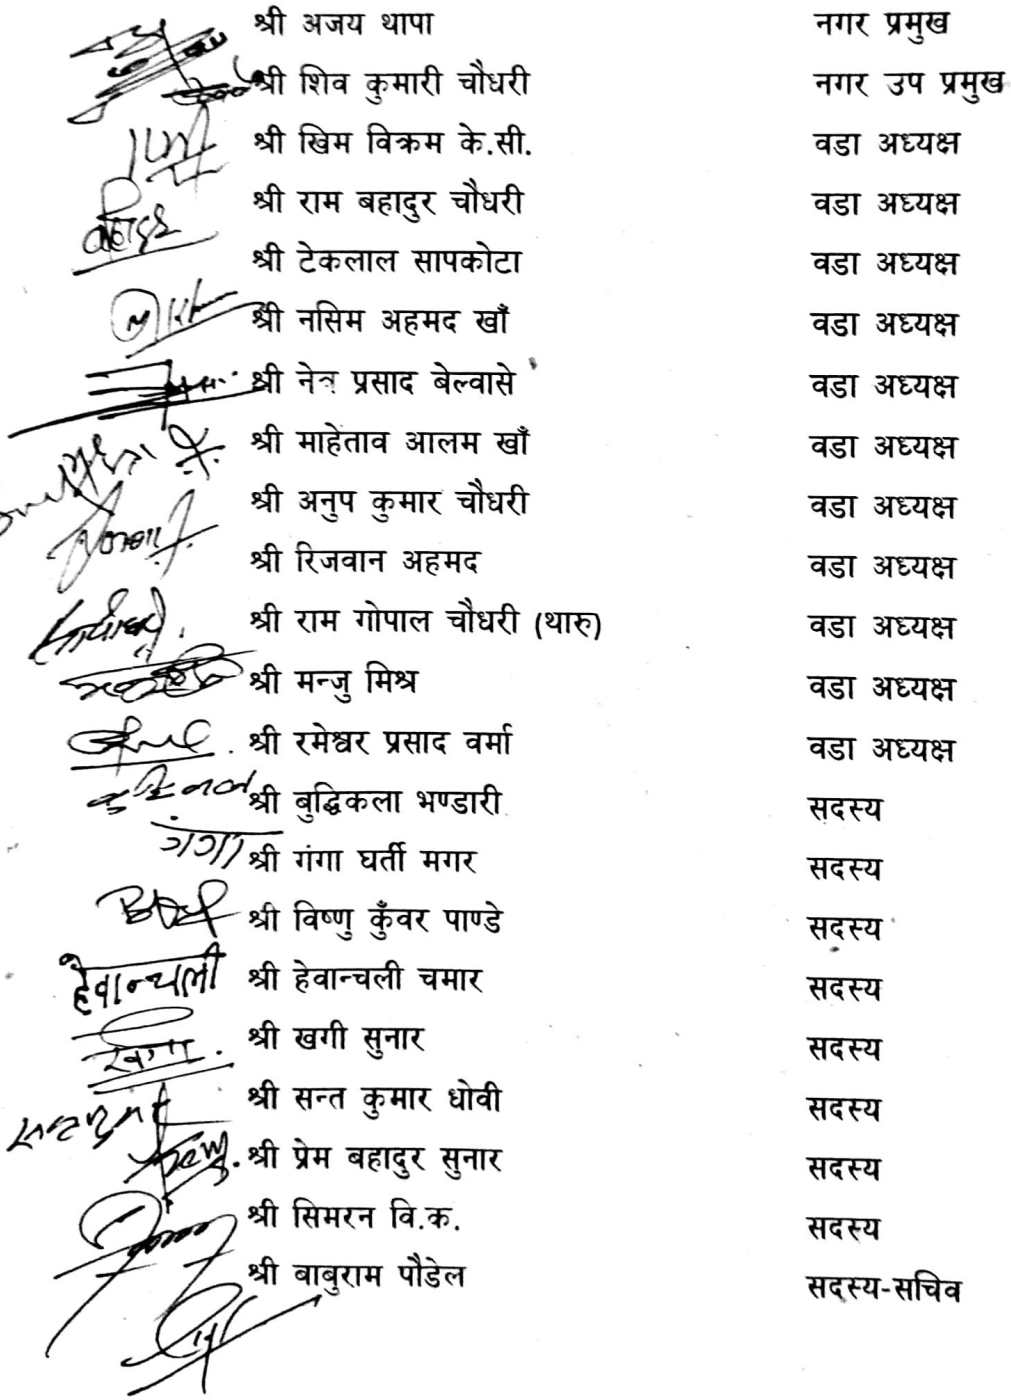 श्री अजय थापा नगर प्रमुख
श्री शिव कुमारी चौधरी नगर उप प्रमुख
श्री खिम विक्रम के.सी. वडा अध्यक्ष
श्री राम बहादुर चौधरी वडा अध्यक्ष
श्री टेकलाल सापकोटा वडा अध्यक्ष
श्री नसिम अहमद खाँ वडा अध्यक्ष
श्री नेत्र प्रसाद बेल्वासे वडा अध्यक्ष
श्री माहेताव आलम खाँ वडा अध्यक्ष
श्री अनुप कुमार चौधरी वडा अध्यक्ष
श्री रिजवान अहमद वडा अध्यक्ष
श्री राम गोपाल चौधरी (थारु) वडा अध्यक्ष
श्री मन्जु मिश्र वडा अध्यक्ष
श्री रमेश्वर प्रसाद वर्मा वडा अध्यक्ष
श्री बुद्धिकला भण्डारी सदस्य
गंगा श्री गंगा घर्ती मगर सदस्य
श्री विष्णु कुँवर पाण्डे सदस्य
हेवान्चली श्री हेवान्चली चमार सदस्य
श्री खगी सुनार सदस्य
श्री सन्त कुमार धोवी सदस्य
श्री प्रेम बहादुर सुनार सदस्य
श्री सिमरन वि.क. सदस्य
श्री बाबुराम पौडेल सदस्य-सचिव